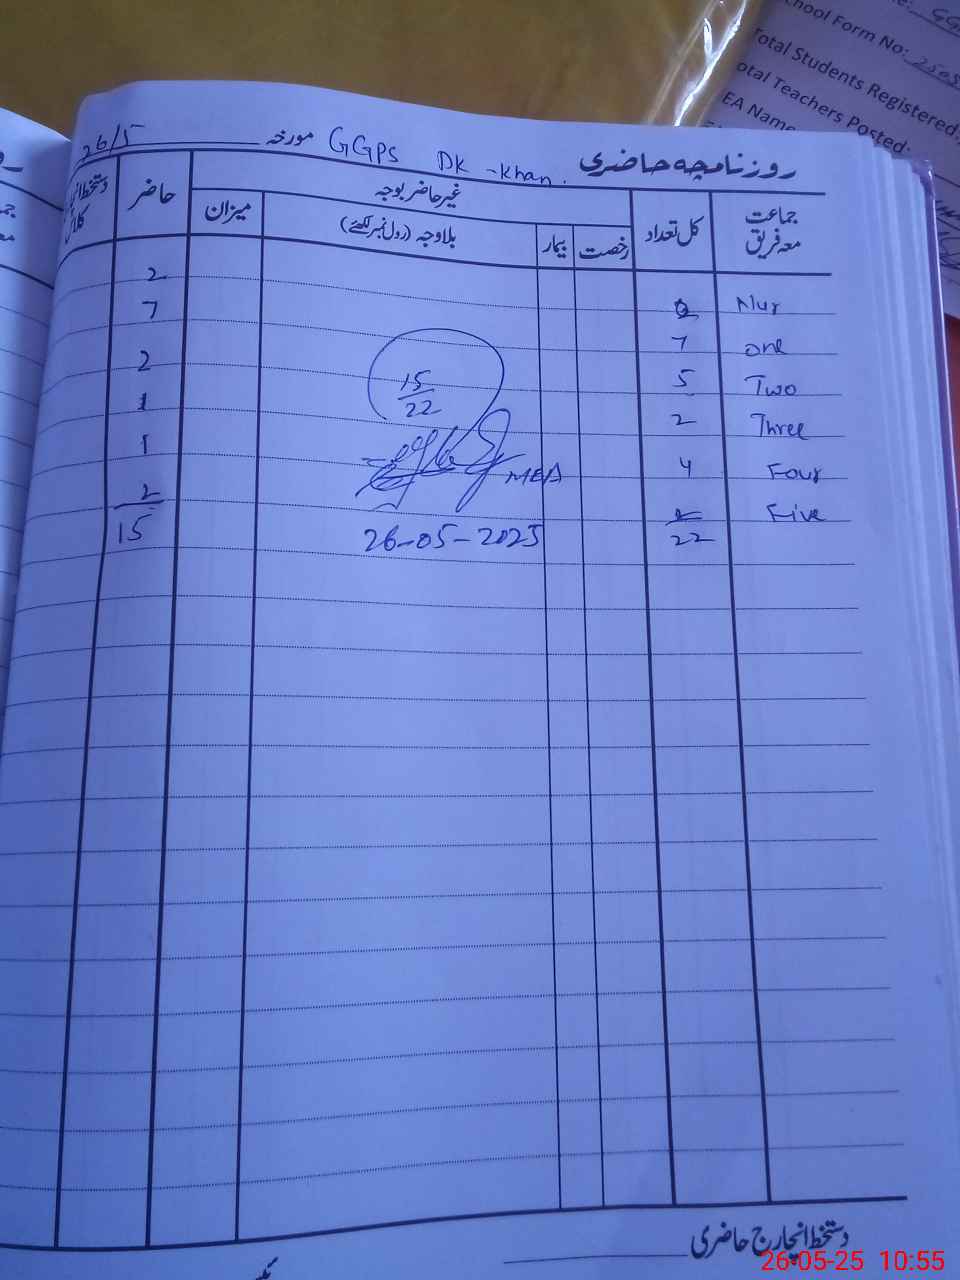 روزنامچہ حاضری GGPS DK-khan. مورخہ 26/5
جماعت معہ فریق کل تعداد غیر حاضر بوجہ حاضر دستخط انچارج کلاس
رخصت بیمار بلاوجہ (رول نمبر لکھئے) میزان
Nur 2 2
one 7 7
Two 5 2
Three 2 1
Four 4 1
Five 2 2
22 15
15/22
MEA
26-05-2025
دستخط انچارج حاضری
School Form No:
Total Students Registered:
Total Teachers Posted:
EA Name
26-05-25 10:55